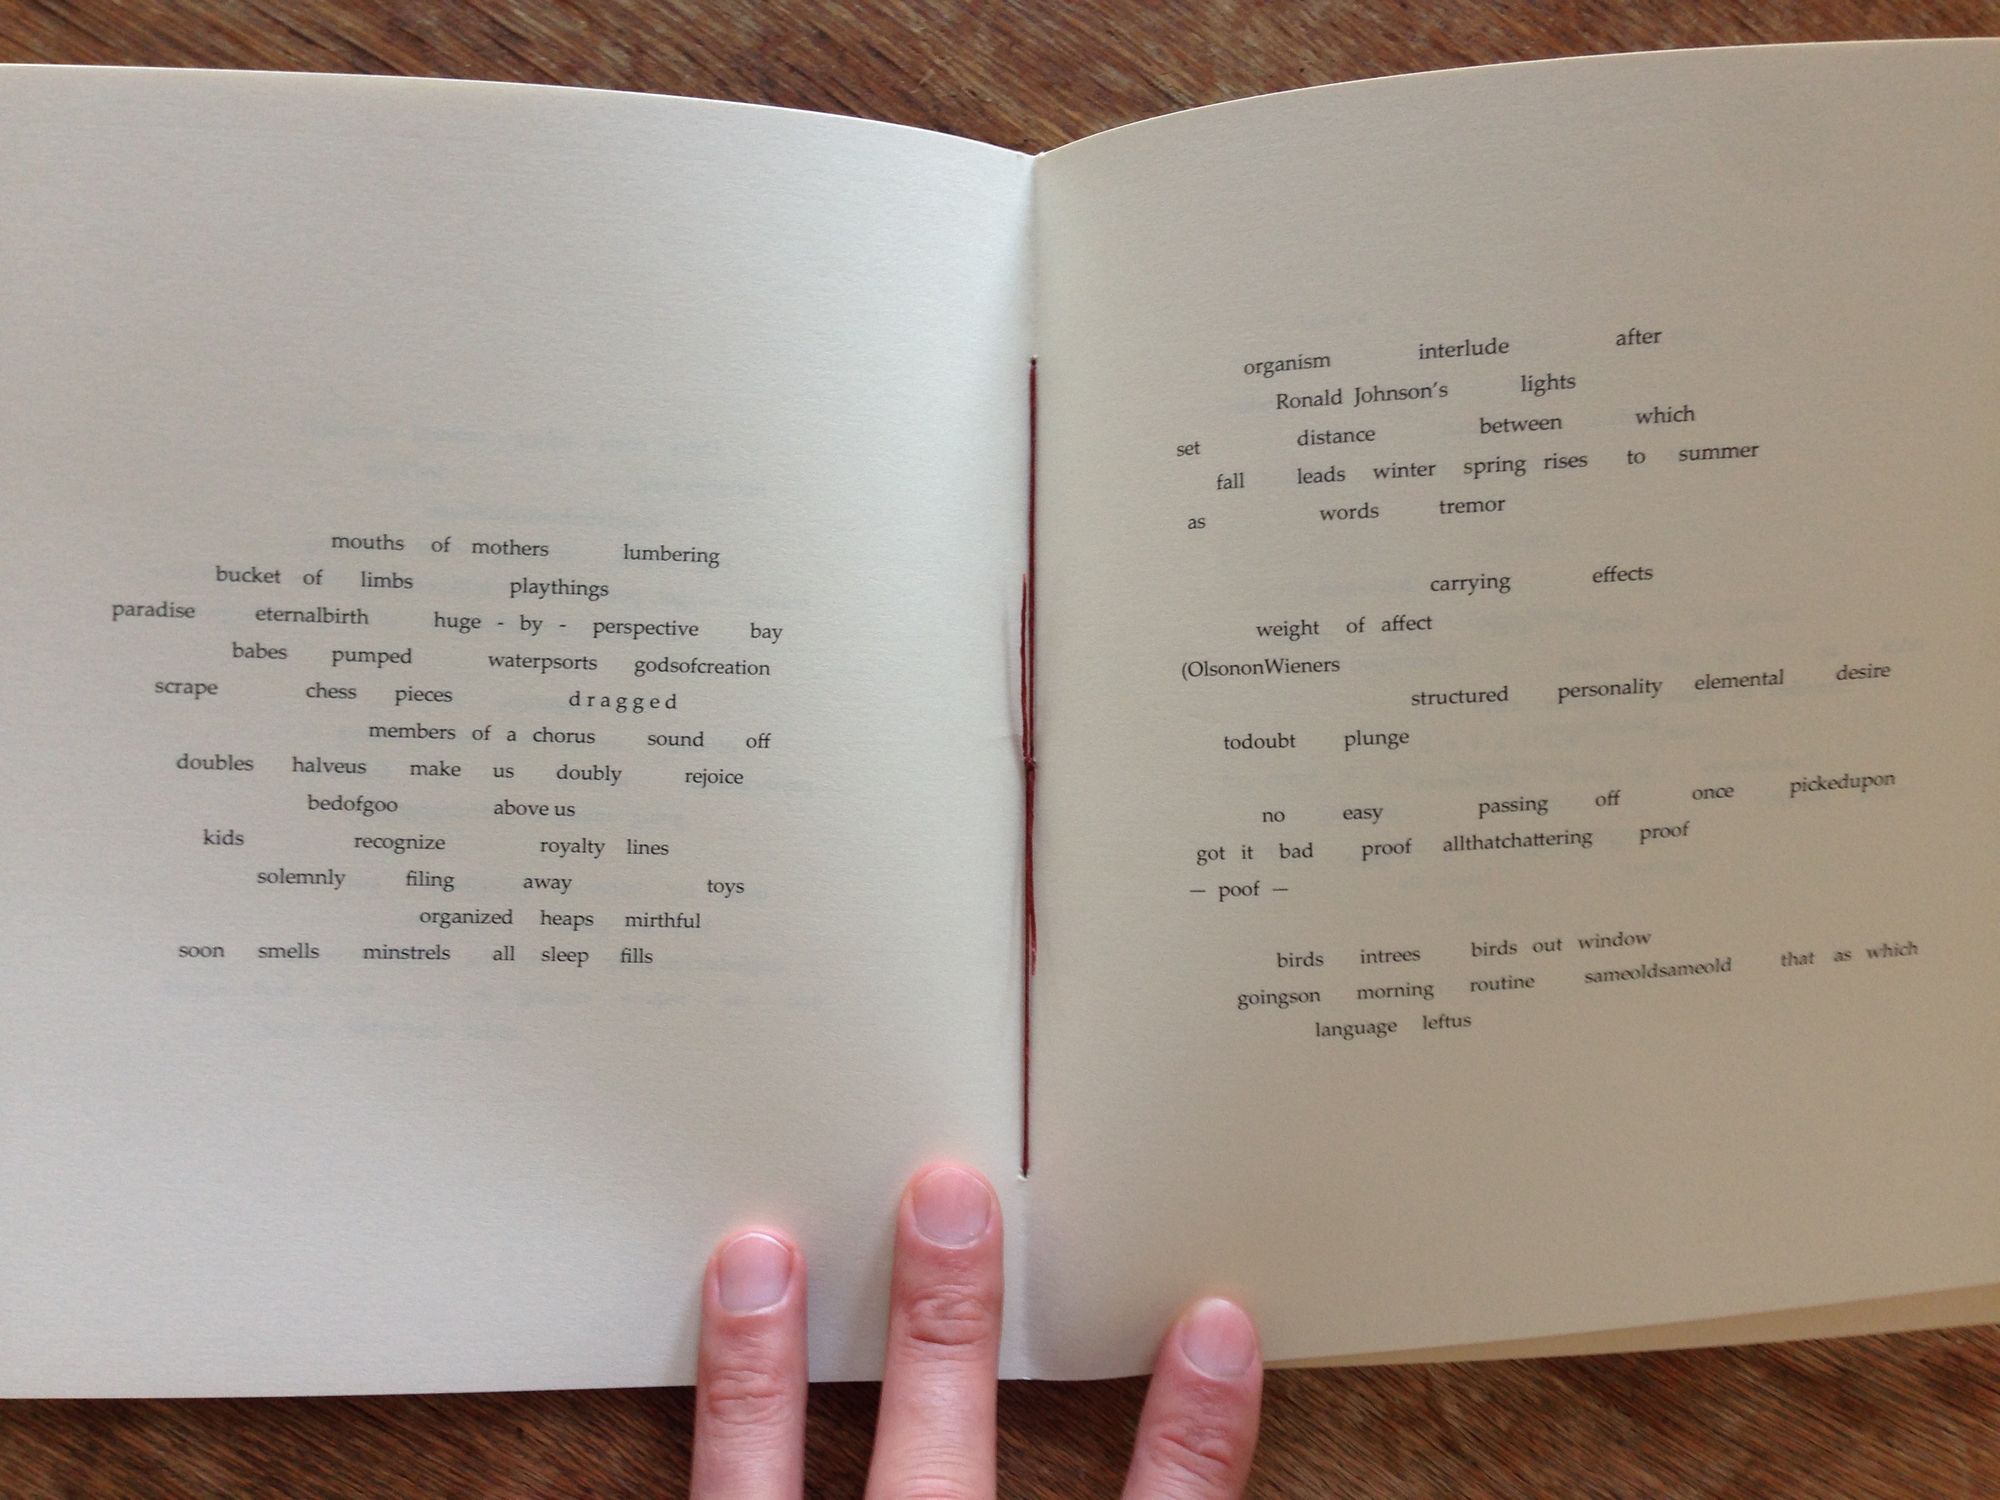 mouths of mothers lumbering
bucket of limbs playthings
paradise eternalbirth huge - by - perspective bay
babes pumped waterpsorts godsofcreation
scrape chess pieces d r a g g e d
members of a chorus sound off
doubles halveus make us doubly rejoice
bedofgoo above us
kids recognize royalty lines
solemnly filing away toys
organized heaps mirthful
soon smells minstrels all sleep fills
organism interlude after
Ronald Johnson's lights
set distance between which
fall leads winter spring rises to summer
as words tremor
carrying effects
weight of affect
(OlsononWieners
structured personality elemental desire
todoubt plunge
no easy passing off once pickedupon
got it bad proof allthatchattering proof
— poof —
birds intrees birds out window
goingson morning routine sameoldsameold that as which
language leftus